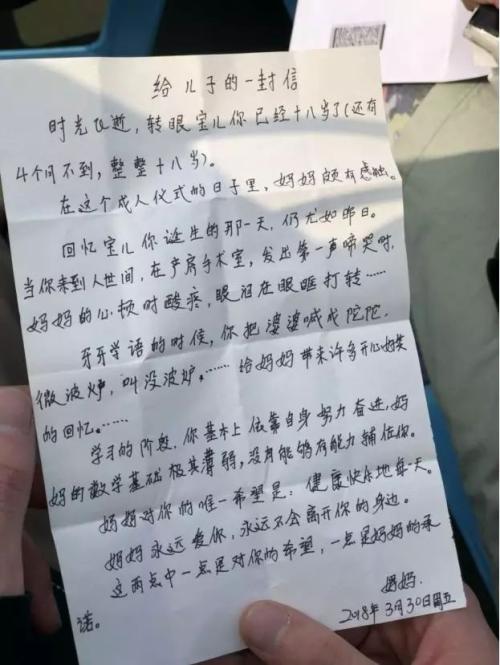 给儿子的一封信
时光飞逝，转眼宝儿你已经十八岁了(还有
4个月不到，整整十八岁)。
在这个成人仪式的日子里，妈妈颇有感触。
回忆宝儿你诞生的那一天，仍尤如昨日。
当你来到人世间，在产房手术室，发出第一声啼哭时，
妈妈的心顿时酸疼，眼泪在眼眶打转……
牙牙学语的时候，你把婆婆喊成陀陀，
微波炉，叫没波炉，……给妈妈带来许多开心好笑
的回忆。……
学习的阶段，你基本上依靠自身努力奋进，妈
妈的数学基础极其薄弱，没有能够有能力辅佐你。
妈妈对你的唯一希望是：健康快乐地每一天。
妈妈永远爱你，永远不会离开你的身边。
这两点中一点是对你的希望，一点是妈妈的承
诺。
妈妈.
2018年3月30日周五